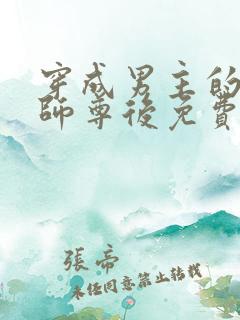 穿成男主的
師尊後免費
張帝
未经同意禁止转载